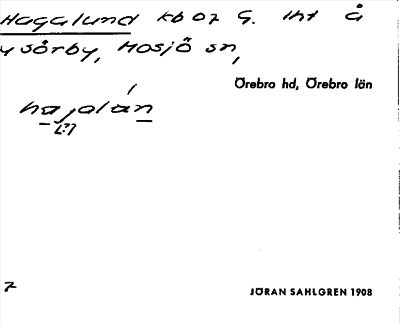 Hagalund kb 07 G. lht å
y sörby, Mosjö sn,
Örebro hd, Örebro län
hajalán
[:?]
7
JÖRAN SAHLGREN 1908